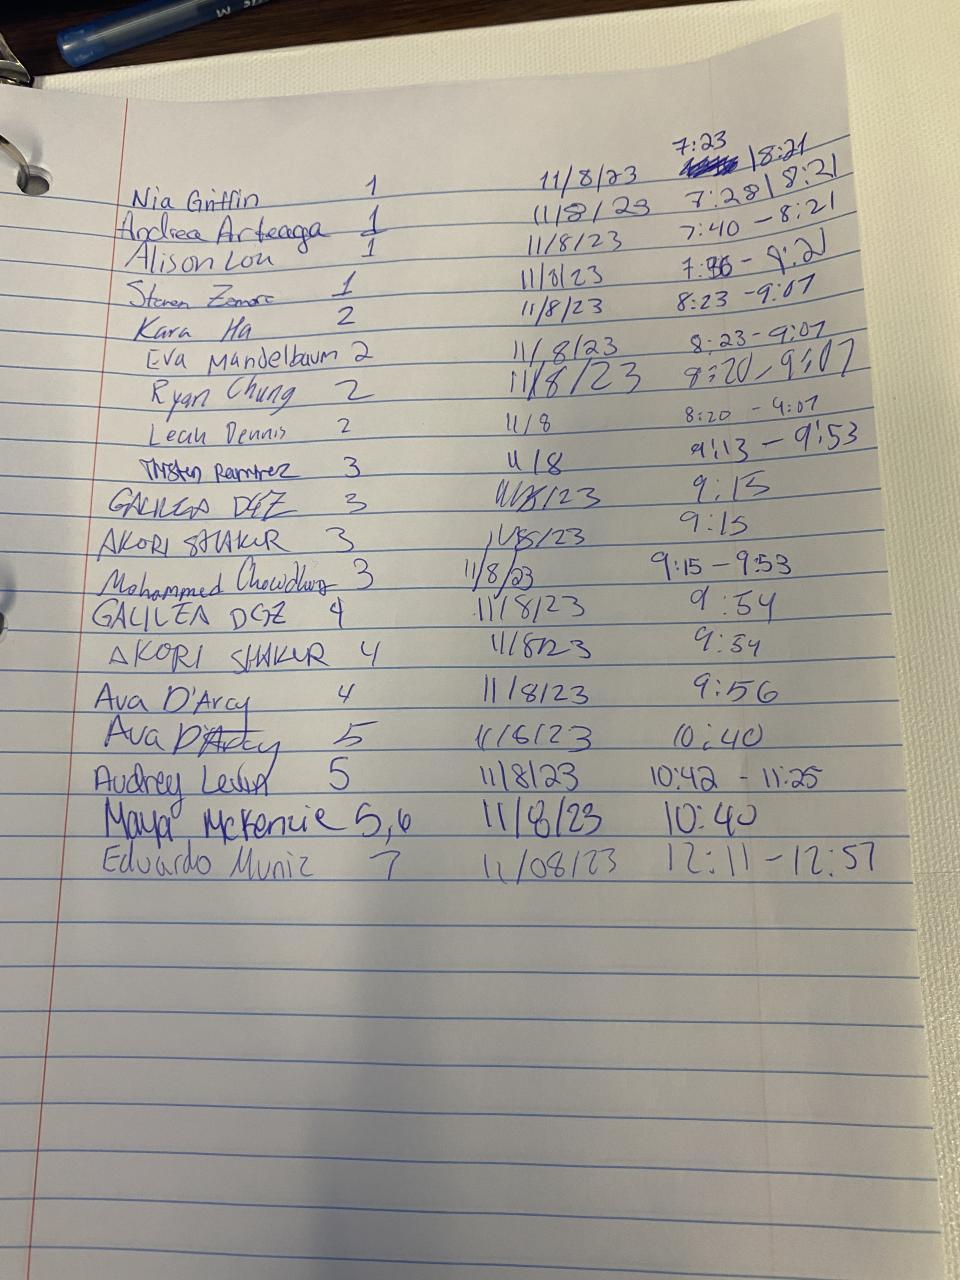 M
Nia Griffin 1 11/8/23 7:23 | 8:21
Andrea Arteaga 1 11/8/23 7:28 | 8:21
Alison Lou 1 11/8/23 7:40 - 8:21
Steven 1 11/8/23 - 8:21
Kara Ha 2 11/8/23 8:23 - 9:07
Eva Mandelbaum 2 11/8/23 8:23 - 9:07
Ryan Chung 2 11/8/23 8:20 - 9:07
Leah Dennis 2 11/8 8:20 - 9:07
Tristen Ramirez 3 11/8 9:13 - 9:53
GALILEA DGZ 3 11/8/23 9:15
AKORI SHAKUR 3 11/8/23 9:15
Mohammed Chowdhury 3 11/8/23 9:15 - 9:53
GALILEA DGZ 4 11/8/23 9:54
AKORI SHAKUR 4 11/8/23 9:54
Ava D'Arcy 4 11/8/23 9:56
Ava D'Arcy 5 11/8/23 10:40
Audrey 5 11/8/23 10:42 - 11:25
Maya McKenzie 5,6 11/8/23 10:40
Eduardo Muniz 7 11/08/23 12:11 - 12:57